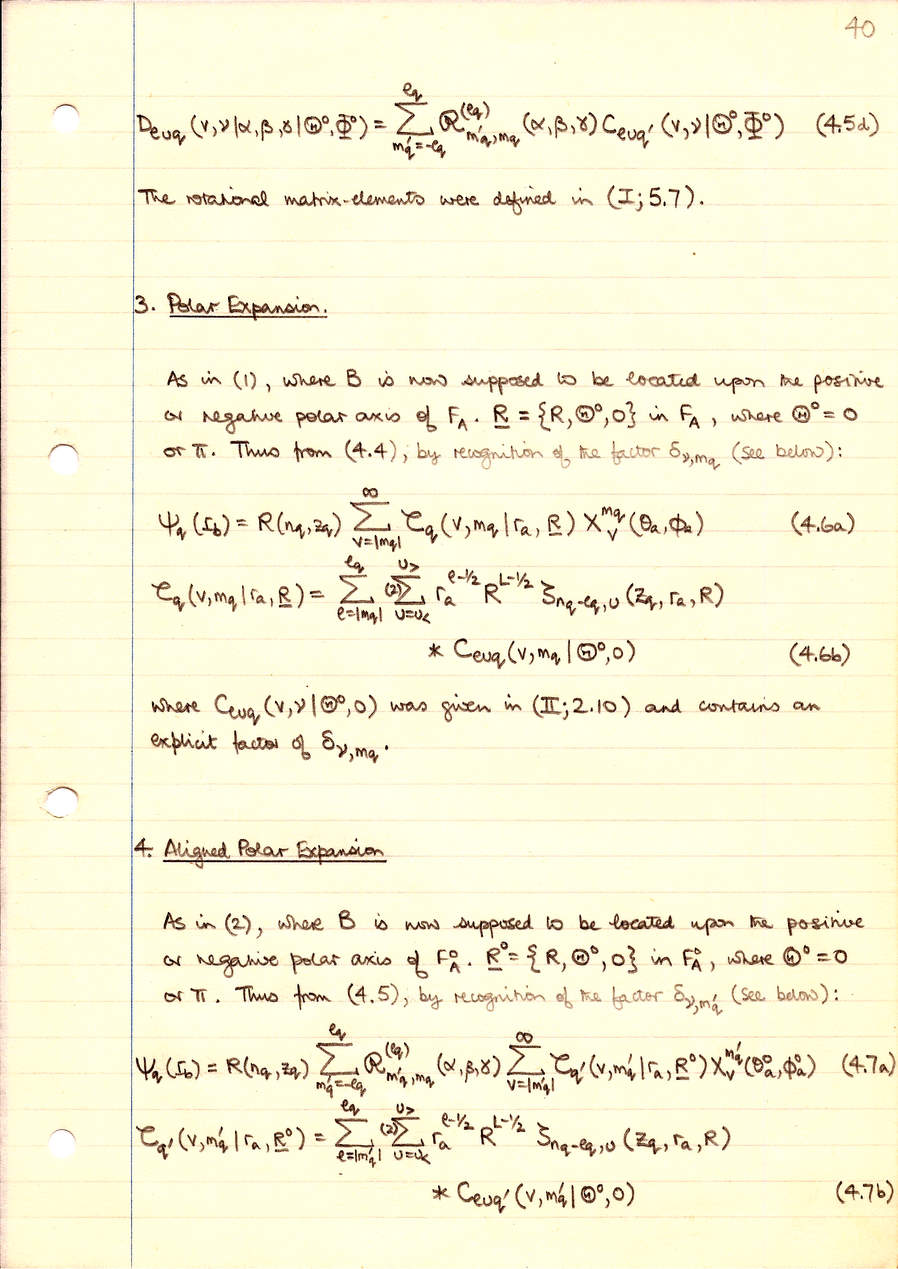 40
D_{ℓυq} (v,ν|α,β,γ|Θ°,Φ°) = Σ_{m'_q=-ℓ_q}^{ℓ_q} ℛ^{(ℓ_q)}_{m'_q,m_q} (α,β,γ) C_{ℓυq'} (v,ν|Θ°,Φ°) (4.5d)
The rotational matrix-elements were defined in (I; 5.7).
3. Polar Expansion.
As in (1), where B is now supposed to be located upon the positive
or negative polar axis of F_A. R = {R, Θ°, 0} in F_A, where Θ° = 0
or π. Thus from (4.4), by recognition of the factor δ_{ν,m_q} (see below):
Ψ_q (r_b) = R(n_q,z_q) Σ_{v=|m_q|}^{∞} 𝒞_q (v,m_q|r_a, R) X_v^{m_q} (θ_a,ϕ_a) (4.6a)
𝒞_q (v,m_q|r_a,R) = Σ_{ℓ=|m_q|}^{ℓ_q} (2)Σ_{υ=υ<}^{υ>} r_a^{ℓ-1/2} R^{L-1/2} ζ_{n_q-ℓ_q,υ} (z_q, r_a, R)
* C_{ℓυq} (v,m_q|Θ°,0) (4.6b)
where C_{ℓυq} (v,ν|Θ°,0) was given in (II; 2.10) and contains an
explicit factor of δ_{ν,m_q}.
4. Aligned Polar Expansion
As in (2), where B is now supposed to be located upon the positive
or negative polar axis of F°_A. R° = {R, Θ°, 0} in F°_A, where Θ° = 0
or π. Thus from (4.5), by recognition of the factor δ_{ν,m'_q} (see below):
Ψ_q (r_b) = R(n_q,z_q) Σ_{m'_q=-ℓ_q}^{ℓ_q} ℛ^{(ℓ_q)}_{m'_q,m_q} (α,β,γ) Σ_{v=|m'_q|}^{∞} 𝒞_{q'} (v,m'_q|r_a,R°) X_v^{m'_q} (θ°_a,ϕ°_a) (4.7a)
𝒞_{q'} (v,m'_q|r_a,R°) = Σ_{ℓ=|m'_q|}^{ℓ_q} (2)Σ_{υ=υ<}^{υ>} r_a^{ℓ-1/2} R^{L-1/2} ζ_{n_q-ℓ_q,υ} (z_q, r_a, R)
* C_{ℓυq'} (v,m'_q|Θ°,0) (4.7b)